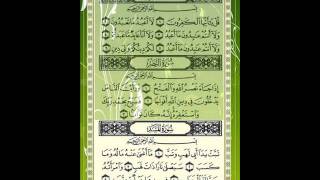 بِسْمِ اللَّهِ الرَّحْمَٰنِ الرَّحِيمِ
قُلْ يَا أَيُّهَا الْكَافِرُونَ لَا أَعْبُدُ مَا تَعْبُدُونَ
وَلَا أَنتُمْ عَابِدُونَ مَا أَعْبُدُ وَلَا أَنَا عَابِدٌ مَّا عَبَدتُّمْ
وَلَا أَنتُمْ عَابِدُونَ مَا أَعْبُدُ لَكُمْ دِينُكُمْ وَلِيَ دِينِ
سُورَةُ النَّصْرِ
بِسْمِ اللَّهِ الرَّحْمَٰنِ الرَّحِيمِ
إِذَا جَاءَ نَصْرُ اللَّهِ وَالْفَتْحُ وَرَأَيْتَ النَّاسَ
يَدْخُلُونَ فِي دِينِ اللَّهِ أَفْوَاجًا فَسَبِّحْ بِحَمْدِ رَبِّكَ
وَاسْتَغْفِرْهُ إِنَّهُ كَانَ تَوَّابًا
سُورَةُ المَسَدِ
بِسْمِ اللَّهِ الرَّحْمَٰنِ الرَّحِيمِ
تَبَّتْ يَدَا أَبِي لَهَبٍ وَتَبَّ مَا أَغْنَىٰ عَنْهُ مَالُهُ وَمَا
كَسَبَ سَيَصْلَىٰ نَارًا ذَاتَ لَهَبٍ وَامْرَأَتُهُ